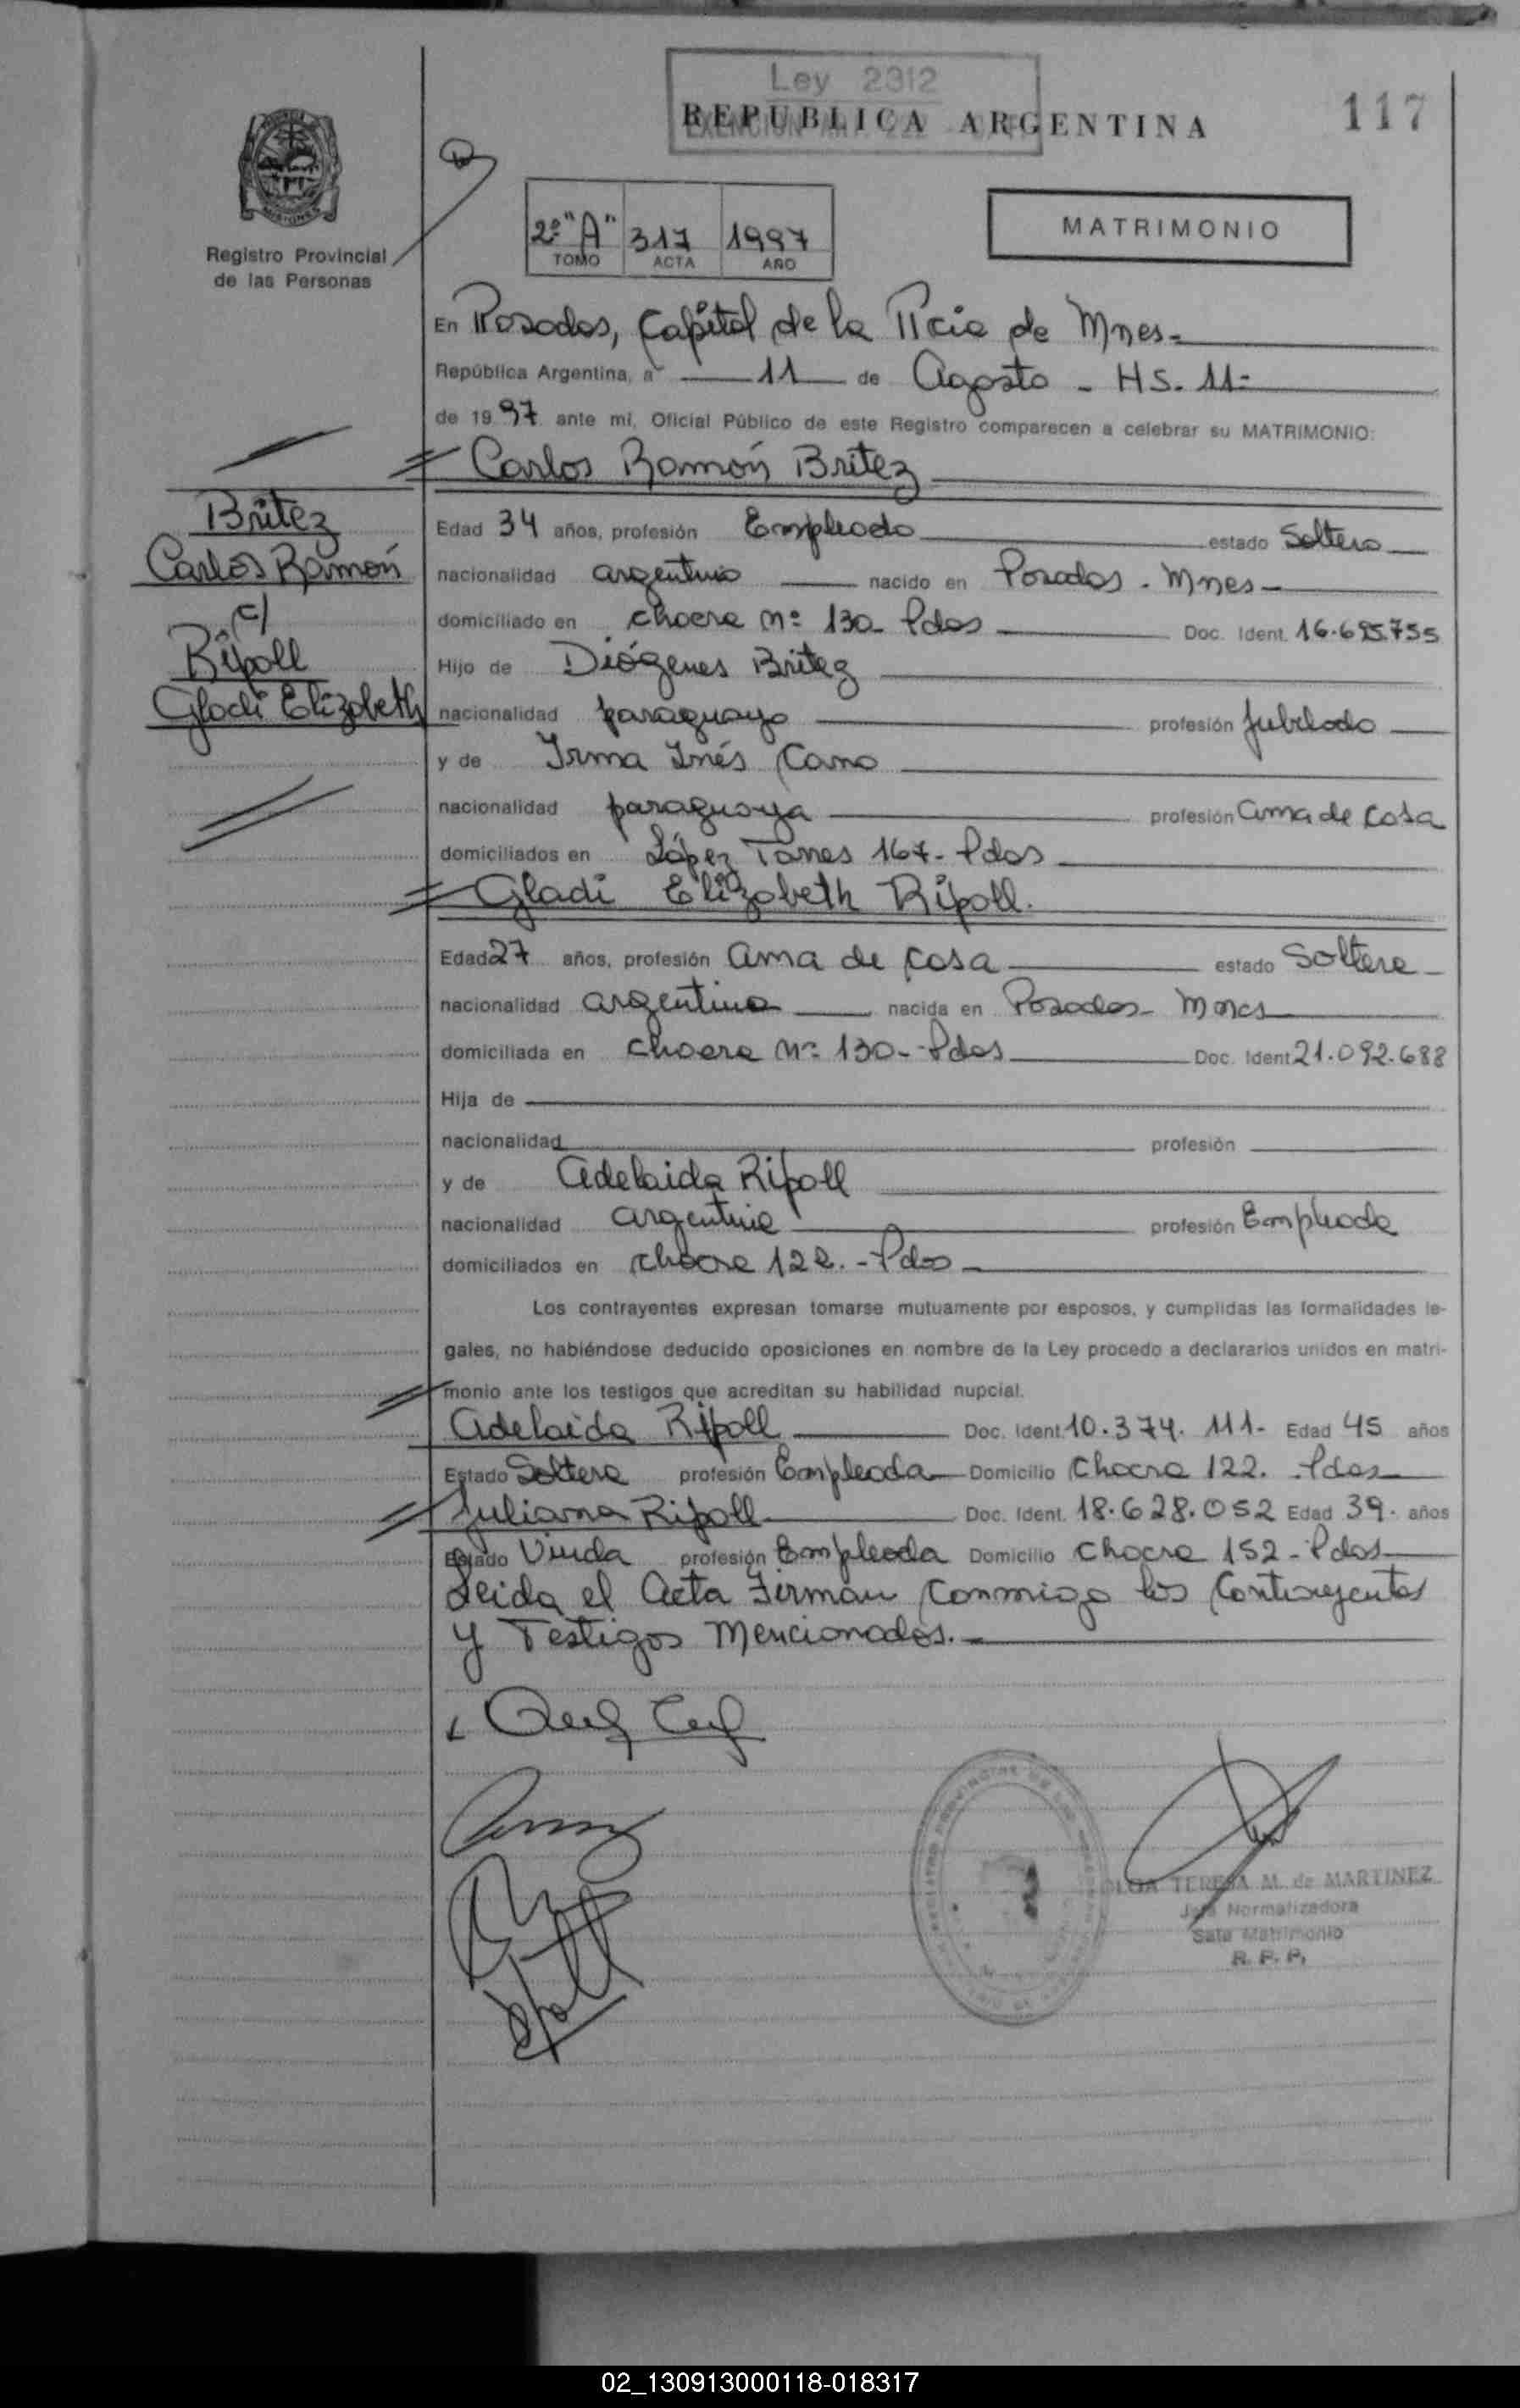 Ley 2312
REPUBLICA ARGENTINA
117
MISIONES
Registro Provincial
de las Personas
2º "A" 317 1997
TOMO ACTA AÑO
MATRIMONIO
En Posadas, Capital de la Pcia de Mnes-
República Argentina, a 11 de Agosto - HS. 11-
de 1997 ante mi, Oficial Público de este Registro comparecen a celebrar su MATRIMONIO:
Carlos Ramón Britez
Britez
Carlos Ramón
c/
Ripoll
Gladi Elizabeth
Edad 34 años, profesión Empleado estado Soltero
nacionalidad argentino nacido en Posadas - Mnes-
domiciliado en chacra Nº 130- Pdas Doc. Ident. 16.695.755
Hijo de Diógenes Britez
nacionalidad paraguayo profesión Jubilado
y de Irma Inés Cano
nacionalidad paraguaya profesión ama de casa
domiciliados en López Torres 167- Pdas
Gladi Elizabeth Ripoll.
Edad 27 años, profesión ama de casa estado Soltera
nacionalidad argentina nacida en Posadas- Mnes
domiciliada en chacra Nº 130-Pdas Doc. Ident 21.092.688
Hija de
nacionalidad profesión
y de Adelaida Ripoll
nacionalidad argentina profesión Empleada
domiciliados en chacra 122.-Pdas
Los contrayentes expresan tomarse mutuamente por esposos, y cumplidas las formalidades le-
gales, no habiéndose deducido oposiciones en nombre de la Ley procedo a declararlos unidos en matri-
monio ante los testigos que acreditan su habilidad nupcial.
Adelaida Ripoll Doc. Ident 10.374.111- Edad 45 años
Estado Soltera profesión Empleada Domicilio Chacra 122. Pdas
Juliana Ripoll Doc. Ident. 18.628.052 Edad 39. años
Estado Viuda profesión Empleada Domicilio Chacra 152-Pdas
Leida el Acta Firman conmigo los Contrayentes
y Testigos Mencionados.-
OLGA TERESA M. de MARTINEZ
Jefa Normalizadora
Sala Matrimonio
R. P. P.
02_130913000118-018317